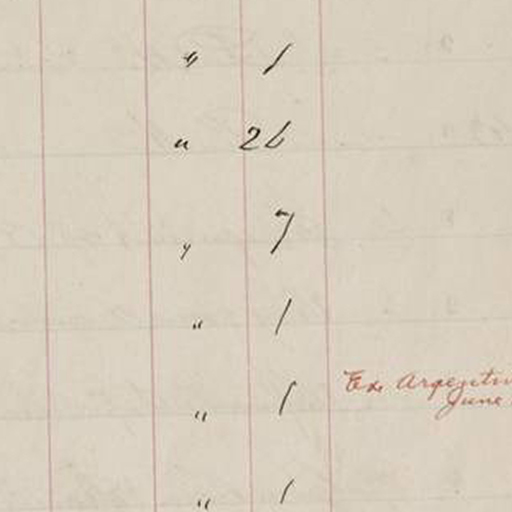 " 1
" 26
" 7
" 1
" 1 Ex. Argentin
June
" 1